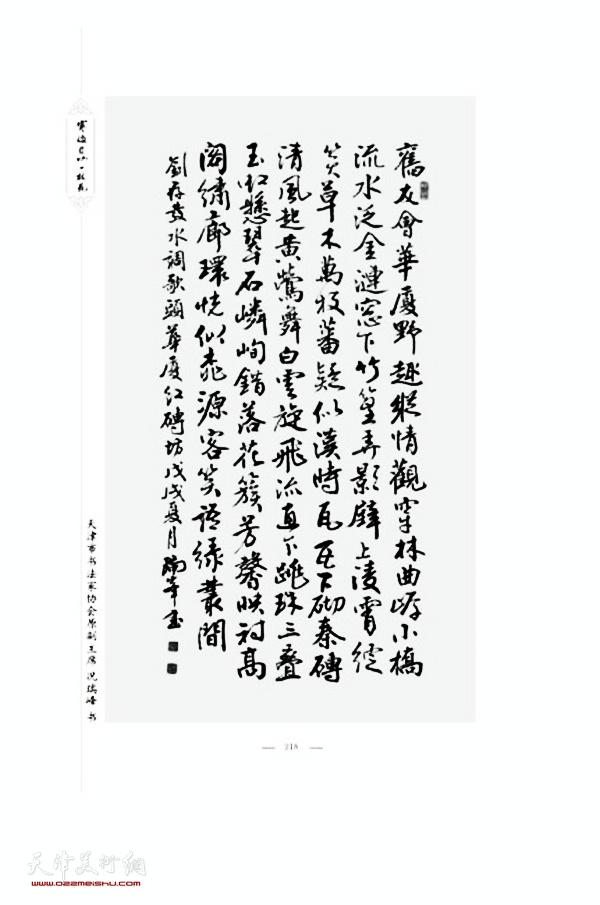 舊友會華廈野趣縱情觀穿林曲小橋
流水泛金漣窓下竹篁弄影壁上凌霄綻
笑草木萬枝蕃疑似漢時瓦瓦下砌秦磚
清風起黄鶯舞白雲旋飛流直下跳珠三疊
玉虹懸翠石嶙峋錯落花簇芳馨映衬高
閣繡廊環恍似桃源客笑語綠叢間
劉存發水調歌頭華廈紅磚坊戊戌夏月瑞峰書
天津市书法家协会原副主席 况瑞峰 书
218
天津美术网
www.022meishu.com